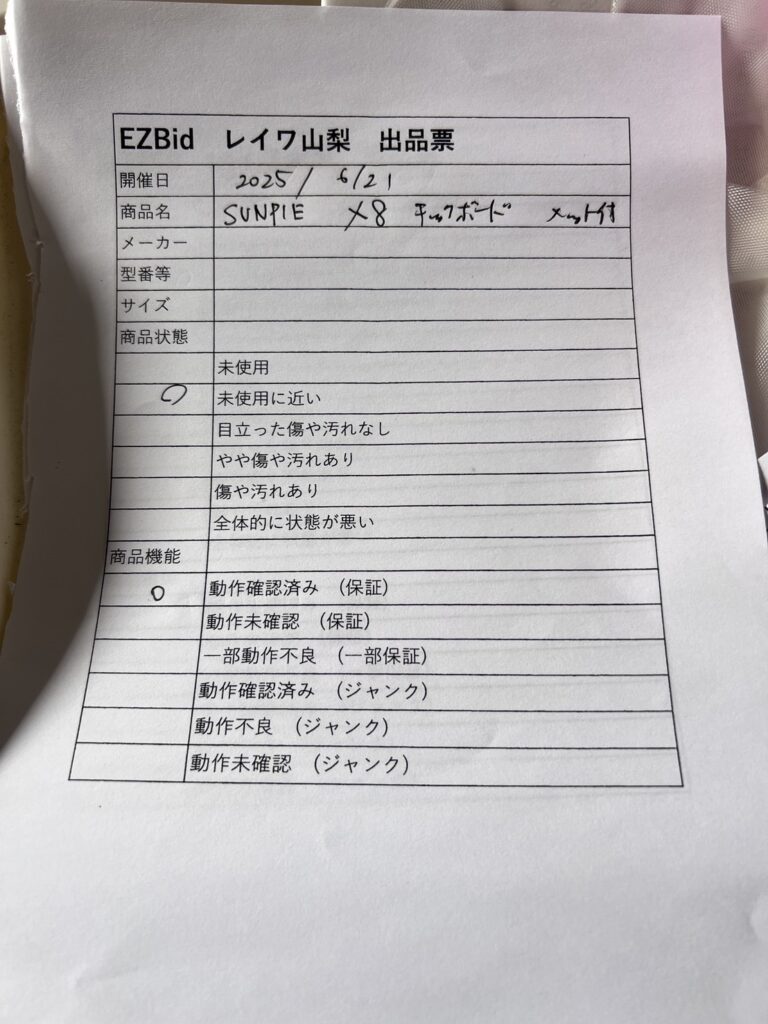 EZBid レイワ山梨 出品票
開催日 2025/ 6/21
商品名 SUNPIE X8 キックボード メット付
メーカー
型番等
サイズ
商品状態
未使用
○ 未使用に近い
目立った傷や汚れなし
やや傷や汚れあり
傷や汚れあり
全体的に状態が悪い
商品機能
○ 動作確認済み (保証)
動作未確認 (保証)
一部動作不良 (一部保証)
動作確認済み (ジャンク)
動作不良 (ジャンク)
動作未確認 (ジャンク)